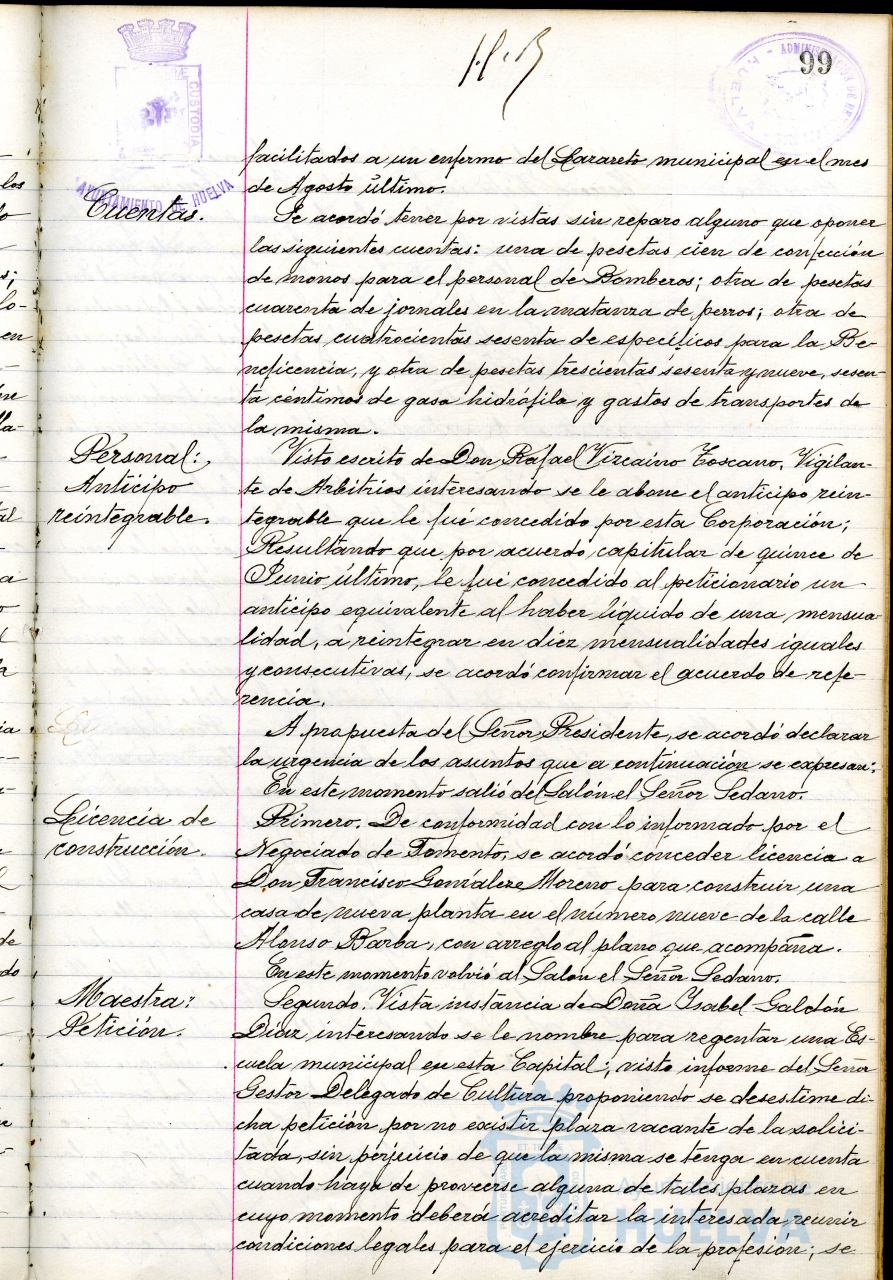 99
ADMINISTRACIÓN DE
HUELVA
CUSTODIA
AYUNTAMIENTO DE HUELVA
facilitados a un enfermo del Lazareto municipal en el mes
de Agosto último.
Cuentas.
Se acordó tener por vistas sin reparo alguno que oponer
las siguientes cuentas: una de pesetas cien de confección
de monos para el personal de Bomberos; otra de pesetas
cuarenta de jornales en la matanza de perros; otra de
pesetas cuatrocientas sesenta de específicos para la Be-
neficencia, y otra de pesetas trescientas sesenta y nueve, sesen-
ta céntimos de gasa hidrófila y gastos de transportes de
la misma.
Personal:
Anticipo
reintegrable.
Visto escrito de Don Rafael Vizcaino Toscano, Vigilan-
te de Arbitrios interesando se le abone el anticipo rein-
tegrable que le fué concedido por esta Corporación;
Resultando que por acuerdo capitular de quince de
Junio último, le fué concedido al peticionario un
anticipo equivalente al haber líquido de una mensua-
lidad, a reintegrar en diez mensualidades iguales
y consecutivas, se acordó confirmar el acuerdo de refe-
rencia.
A propuesta del Señor Presidente, se acordó declarar
la urgencia de los asuntos que a continuación se expresan:
En este momento salió del Salón el Señor Sedano.
Licencia de
construcción.
Primero. De conformidad con lo informado por el
Negociado de Fomento, se acordó conceder licencia a
Don Francisco González Moreno para construir una
casa de nueva planta en el número nueve de la calle
Alonso Barba, con arreglo al plano que acompaña.
En este momento volvió al Salón el Señor Sedano.
Maestra:
Petición.
Segundo. Vista instancia de Doña Ysabel Galdón
Diaz, interesando se le nombre para regentar una Es-
cuela municipal en esta Capital; visto informe del Señor
Gestor Delegado de Cultura proponiendo se desestime di-
cha petición por no existir plaza vacante de la solici-
tada, sin perjuicio de que la misma se tenga en cuenta
cuando haya de proveerse alguna de tales plazas en
cuyo momento deberá acreditar la interesada reunir
condiciones legales para el ejercicio de la profesión; se
HUELVA